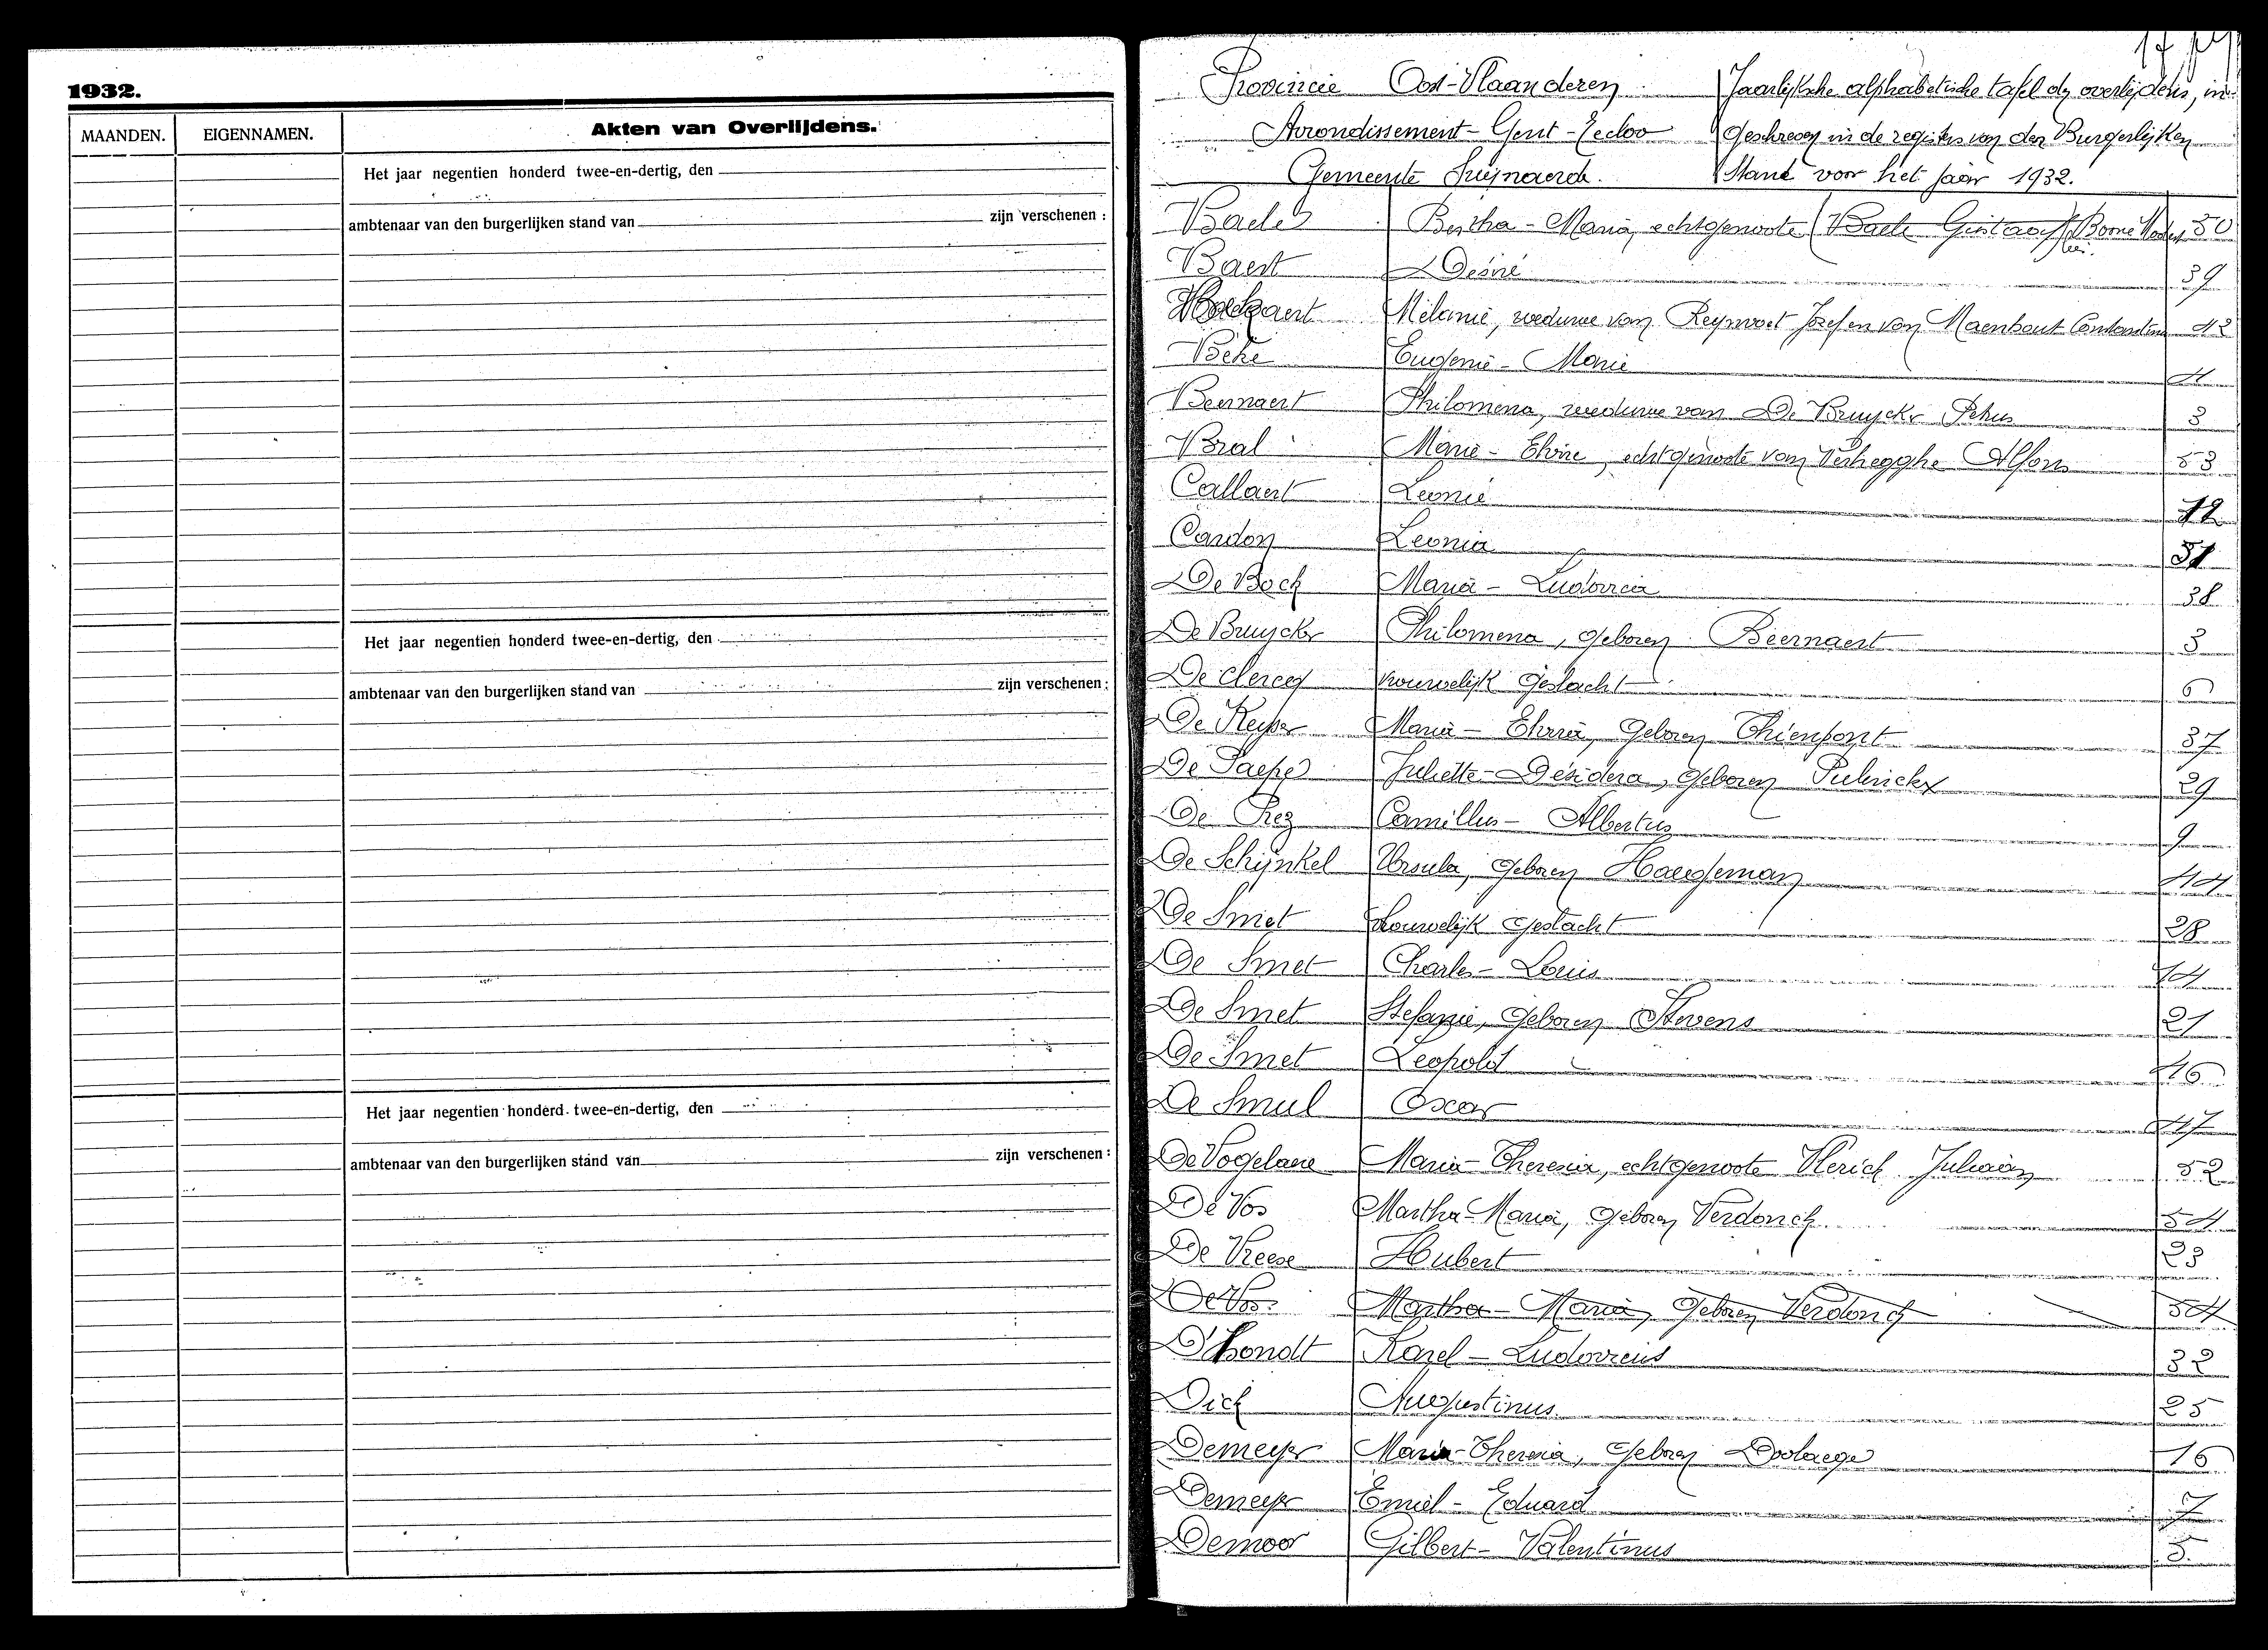 1932.
MAANDEN. EIGENNAMEN. Akten van Overlijdens.
Het jaar negentien honderd twee-en-dertig, den
ambtenaar van den burgerlijken stand van zijn verschenen :
Het jaar negentien honderd twee-en-dertig, den
ambtenaar van den burgerlijken stand van zijn verschenen :
Het jaar negentien honderd twee-en-dertig, den
ambtenaar van den burgerlijken stand van zijn verschenen :
Provincie Oost-Vlaanderen
Arrondissement - Gent - Eecloo
Gemeente Swijnaerde.
Jaarlijksche alphabetische tafel der overlijdens, in-
geschreven in de registers van den Burgerlijken
Stand voor het jaar 1932.
Baele Bertha - Maria, echtgenoote (Baele Gustaaf) Boone 50
Baert Desiré 39
Mélanie, weduwe van Reyvoet Jozef en van Maenhout Constantin 42
Beke Eugenie - Marie 4
Beernaert Philomena, weduwe van De Bruycker Petrus 3
Bral Marie - Elvire, echtgenoote van Verhegghe Alfons 53
Callaert Leonie 12
Cardon Leonia 51
De Bock Maria - Ludovica 38
De Bruycker Philomena, geboren Beernaert 3
De Clercq vrouwelijk geslacht 6
De Keyser Maria - Elvira, geboren Thienpont 37
De Paepe Juliette - Désidera, geboren Pulinckx 29
De Prez Camillus - Albertus 9
De Schijnkel Ursula, geboren Haegeman 44
De Smet Vrouwelijk geslacht 28
De Smet Charles - Louis 14
De Smet Stefanie, geboren Stevens 21
De Smet Leopold 46
De Smul Oscar 47
De Vogelaere Maria - Theresia, echtgenoote Vlerick Juliaan 52
De Vos Martha - Maria, geboren Verdonck 54
De Vreese Hubert 23
De Vos Martha - Maria, geboren Verdonck 54
D'hondt Karel - Ludovicus 32
Dick Augustinus 25
Demeyer Maria - Theresia, geboren Doolaege 16
Demeyer Emiel - Eduard 7
Demoor Gilbert - Valentinus 5